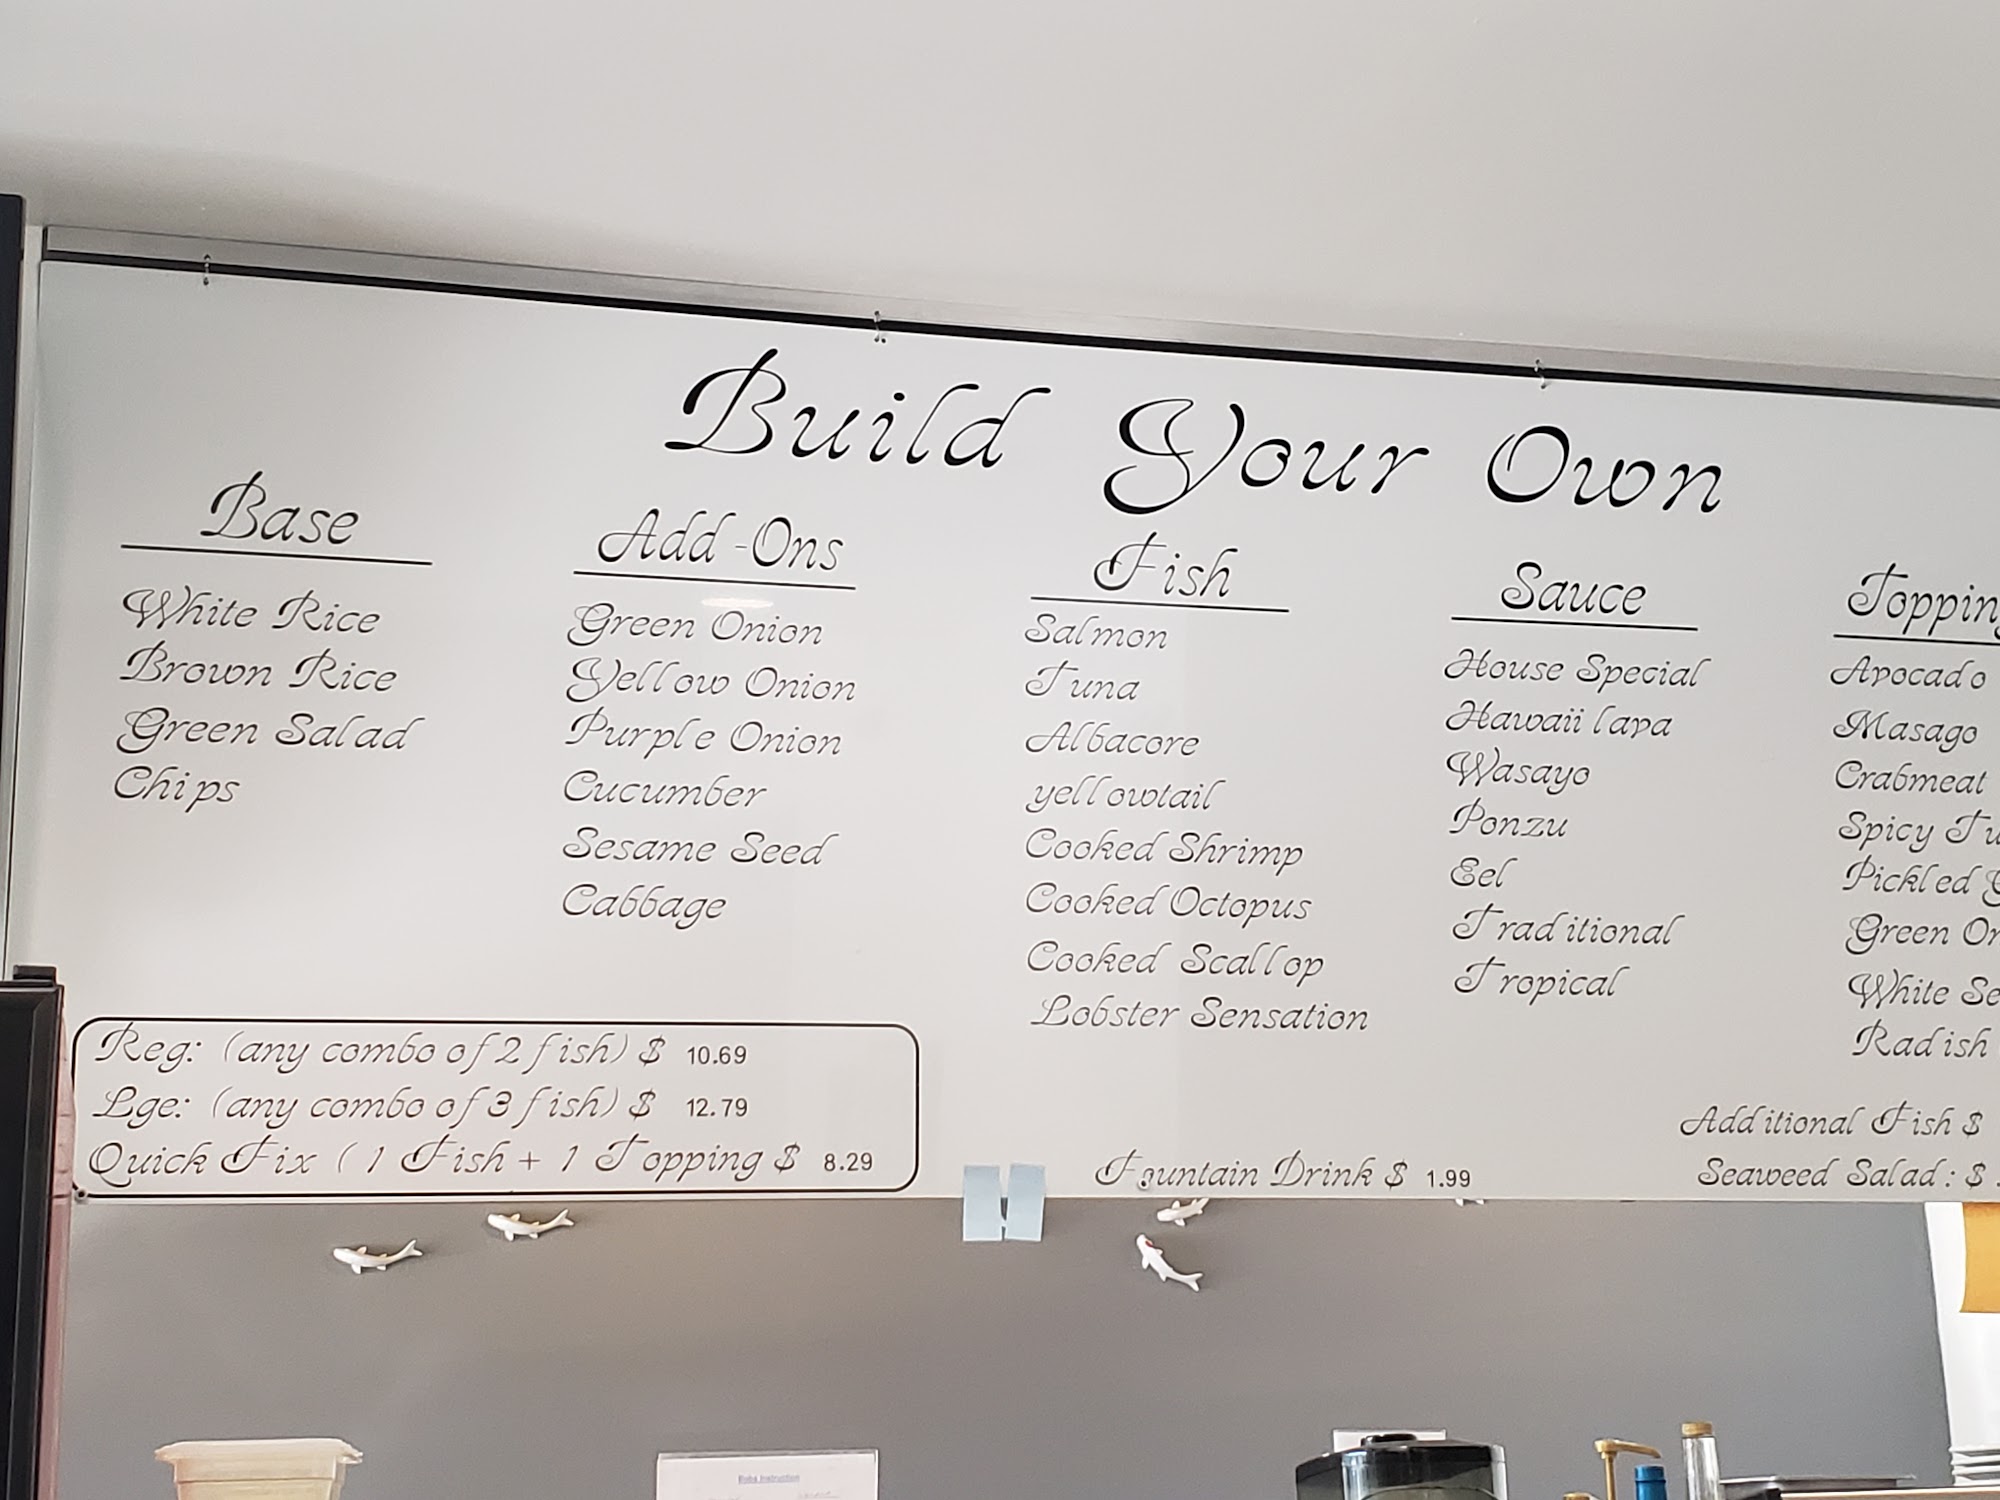 Build Your Own
Base
White Rice
Brown Rice
Green Salad
Chips
Add-Ons
Green Onion
Yellow Onion
Purple Onion
Cucumber
Sesame Seed
Cabbage
Fish
Salmon
Tuna
Albacore
yellowtail
Cooked Shrimp
Cooked Octopus
Cooked Scallop
Lobster Sensation
Sauce
House Special
Hawaii lava
Wasayo
Ponzu
Eel
Traditional
Tropical
Topping
Avocado
Masago
Crabmeat
Spicy
Pickled
Green
White
Radish
Reg: (any combo of 2 fish) $ 10.69
Lge: (any combo of 3 fish) $ 12.79
Quick Fix ( 1 Fish + 1 Topping $ 8.29
Fountain Drink $ 1.99
Additional Fish $
Seaweed Salad: $
Boba Instruction